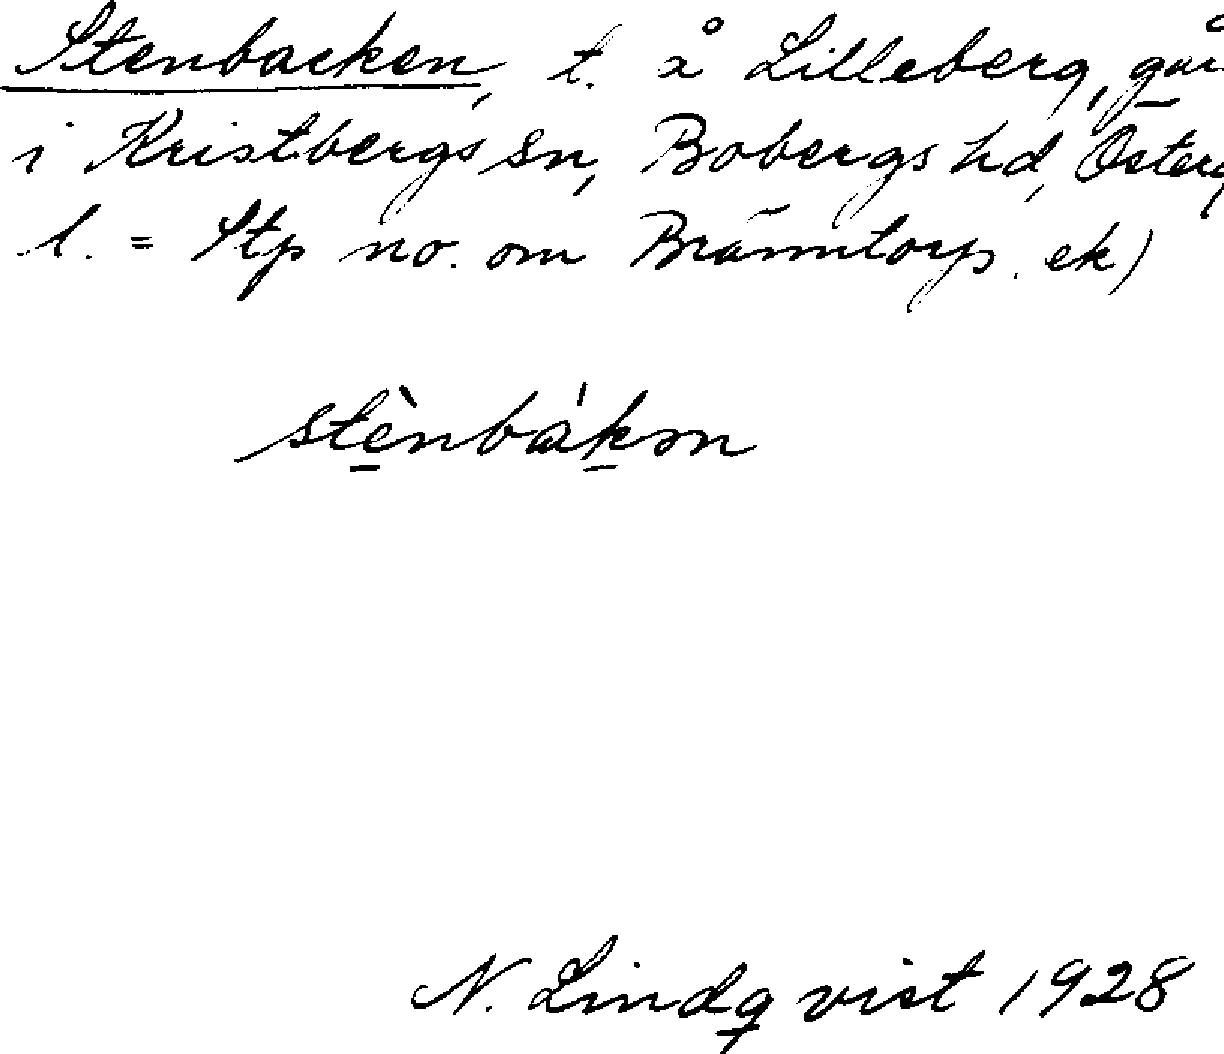 Stenbacken, t. å Lilleberg, går
i Kristbergs sn, Bobergs hd, Österg
l. = Stp no. om Brännntorp. ek)
stènbákən
N. Lindqvist 1928